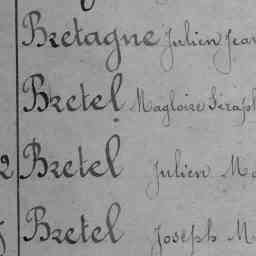 Bretagne Julien Jean
Bretel Magloire Séraph
2 Bretel Julien Ma
Bretel Joseph M